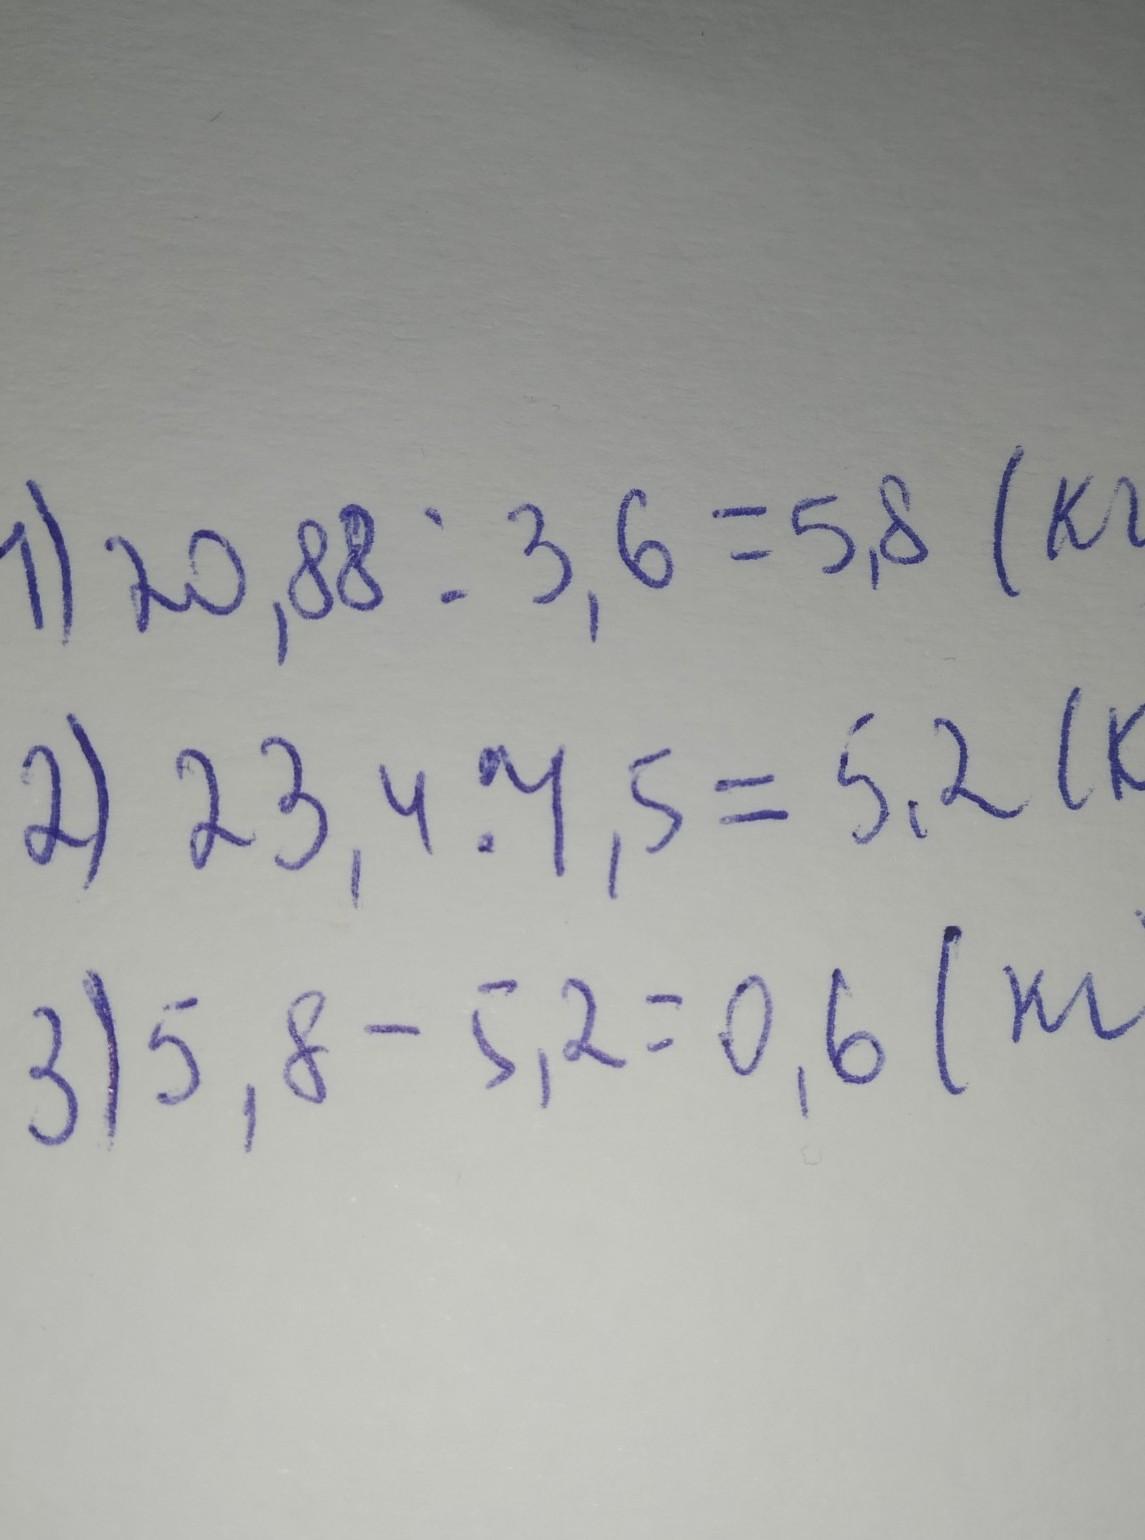 1) 20,88 : 3,6 = 5,8 (кг
2) 23,4 : 4,5 = 5,2 (к
3) 5,8 - 5,2 = 0,6 (кг